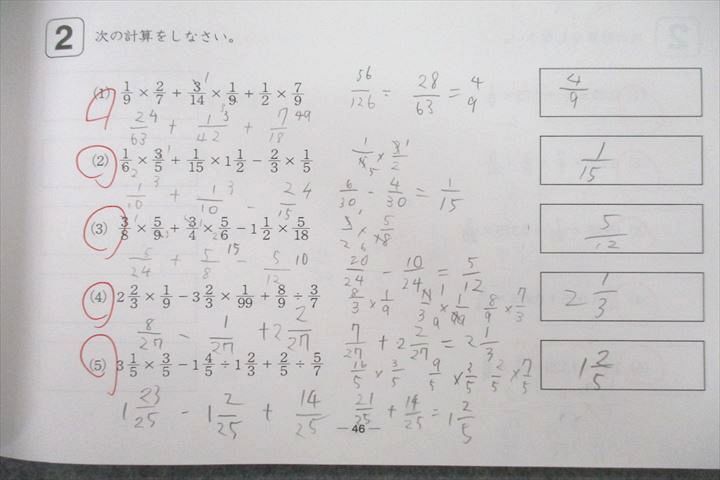 2 次の計算をしなさい。
(1) 1/9 × 2/7 + 3/14 × 1/9 + 1/2 × 7/9
56/126 = 28/63 = 4/9
4/9
2/63 + 1/42 + 7/18
(2) 1/6 × 3/5 + 1/15 × 1 1/2 − 2/3 × 1/5
1/15
1/10 + 1/10 − 2/15
6/30 − 4/30 = 1/15
(3) 3/8 × 5/9 + 3/4 × 5/6 − 1 1/2 × 5/18
5/12
5/24 + 5/8 − 5/12
20/24 − 10/24 = 5/12
(4) 2 2/3 × 1/9 − 3 2/3 × 1/99 + 8/9 ÷ 3/7
8/3 × 1/9 11/3 × 1/99 8/9 × 7/3
2 1/3
8/27 − 1/27 + 2 2/27
7/27 + 2 2/27 = 2 1/3
(5) 3 1/5 × 3/5 − 1 4/5 ÷ 1 2/3 + 2/5 ÷ 5/7
16/5 × 3/5 9/5 × 3/5 2/5 × 7/5
1 2/5
1 23/25 − 1 2/25 + 14/25
21/25 + 14/25 = 1 2/5
― 46 ―